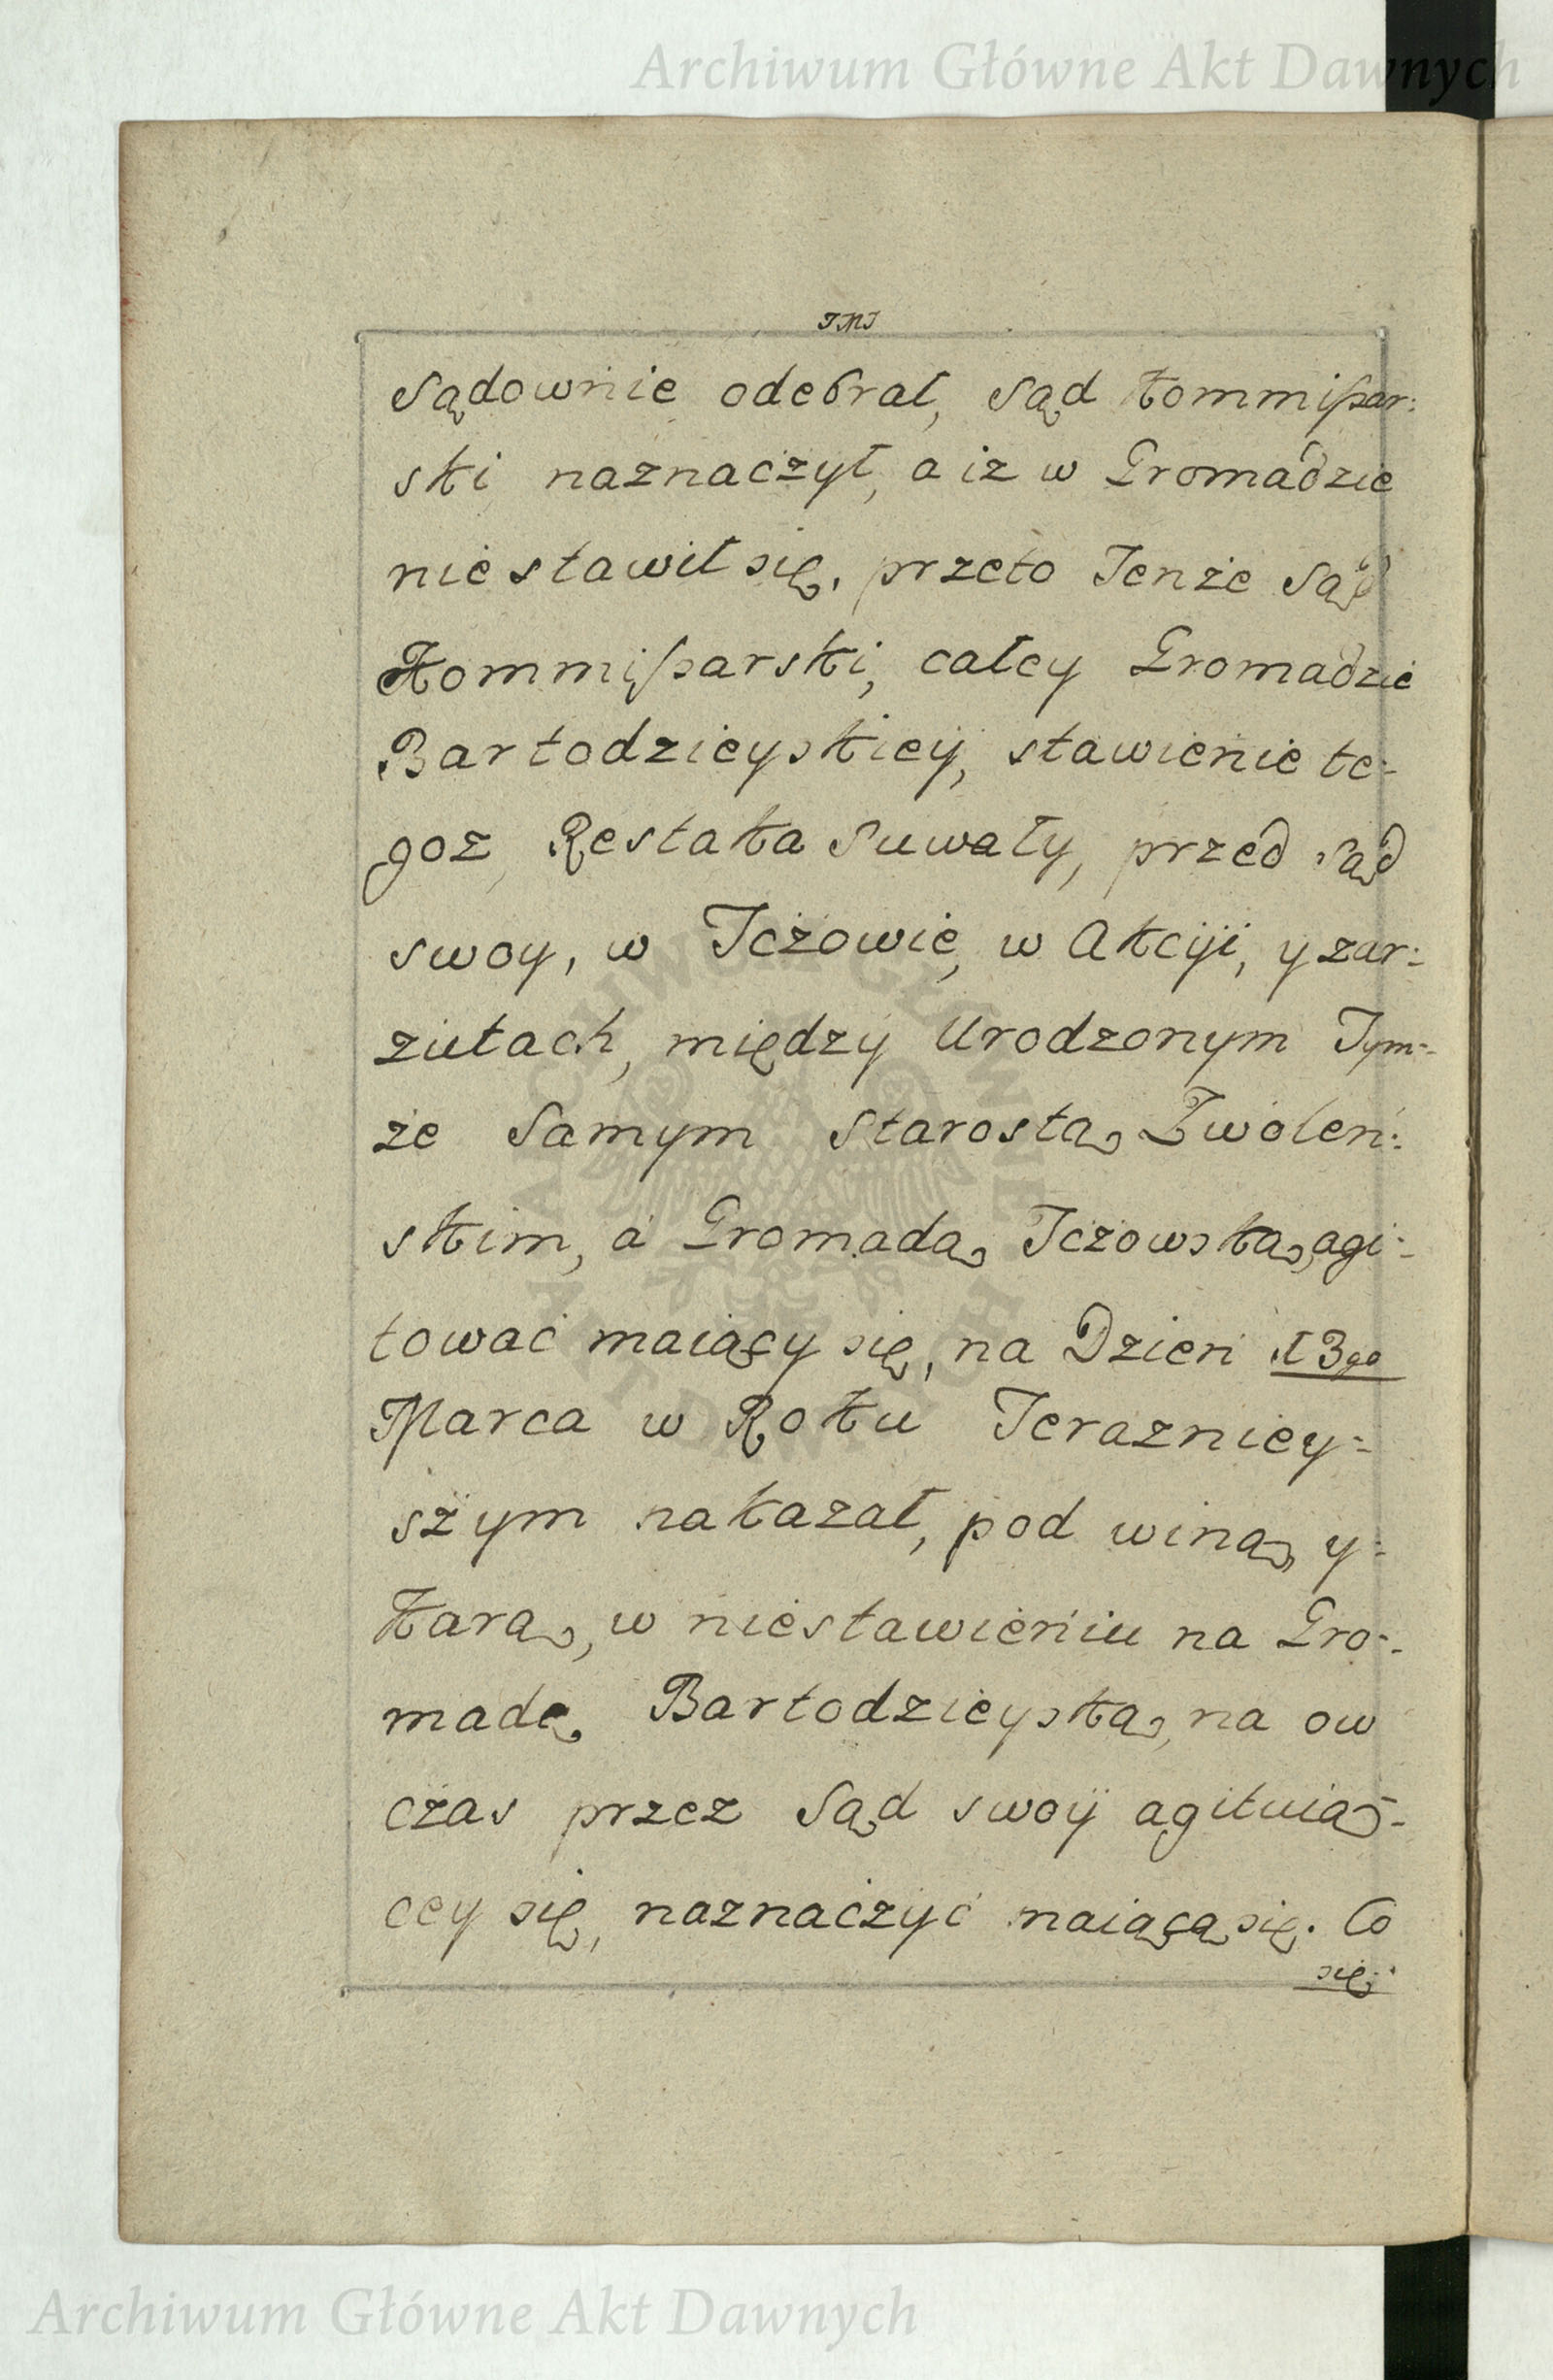 Archiwum Główne Akt Dawnych
JMJ
Sądownie odebrał, Sąd Kommißar:
ski naznaczył, a iz w Gromadzie
nie stawił się, przeto Tenże Sąd
Kommißarski, całey Gromadzie
Bartodzieyskiey, stawienie te:
goz Restaka Suwały, przed sąd
swoy, w Tczowie, w Akcyi, y zar:
zutach, między Urodzonym Tym:
że Samym Starostą Zwoleń:
skim, a Gromadą Tczowską, agi:
tować maiący się, na Dzień 13go
Marca w Roku Terazniey:
szym nakazał, pod winą y:
karą, w niestawieniu na Gro:
madę Bartodzieyską, na ow
czas przez Sąd swoy agituią:
cey się, naznaczyć maiącą się. Co
się:
Archiwum Główne Akt Dawnych